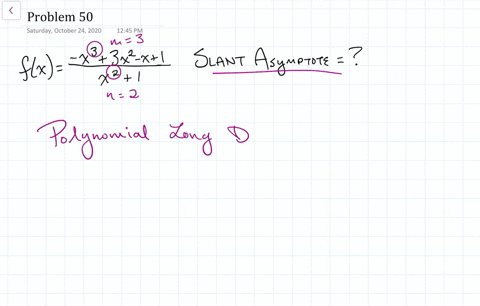 Problem 50
Saturday, October 24, 2020 12:45 PM
m = 3
f(x) = (-x³ + 3x² - x + 1)/(x² + 1) SLANT ASYMPTOTE = ?
n = 2
Polynomial Long D